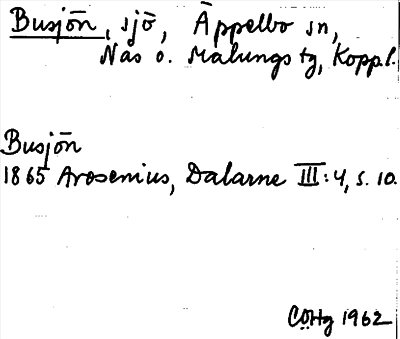 Busjön, sjö, Äppelbo sn,
Nås o. Malungs tg, Koppl.
Busjön
1865 Arosenius, Dalarne III:4, s. 10.
1962